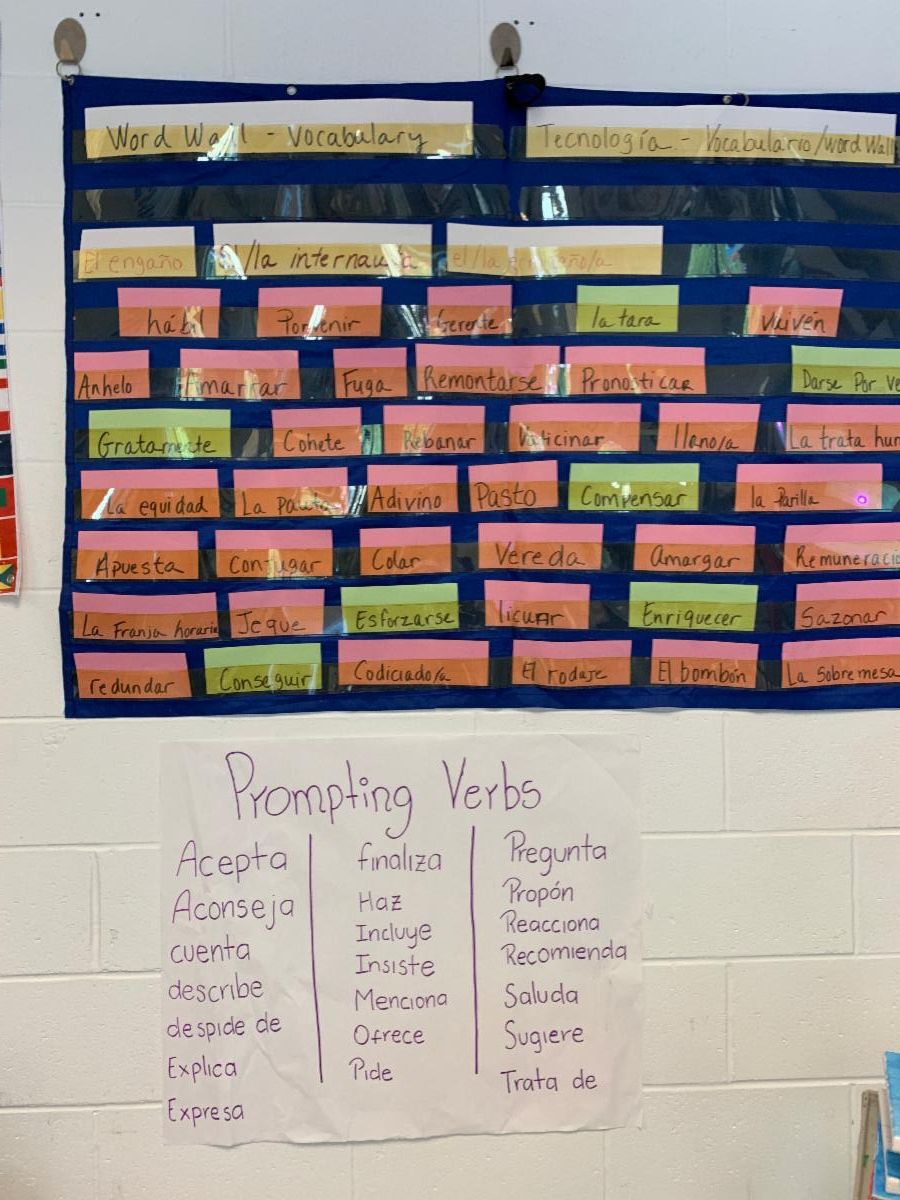 Word Wall - Vocabulary
Tecnología - Vocabulario/Word Wall
El engaño el/la internauta el/la ermitaño/a
hábil Porvenir Gerente la tara Vaivén
Anhelo Amarrar Fuga Remontarse Pronosticar Darse Por Ve
Gratamente Cohete Rebanar Vaticinar llano/a La trata hum
La equidad La Pauta Adivino Pasto Compensar la Parilla
Apuesta Conjugar Colar Vereda Amargar Remuneració
La Franja horaria Jeque Esforzarse licuar Enriquecer Sazonar
redundar Conseguir Codiciado/a El rodaje El bombón La Sobremesa
Prompting Verbs
Acepta
Aconseja
cuenta
describe
despide de
Explica
Expresa
finaliza
Haz
Incluye
Insiste
Menciona
Ofrece
Pide
Pregunta
Propón
Reacciona
Recomienda
Saluda
Sugiere
Trata de